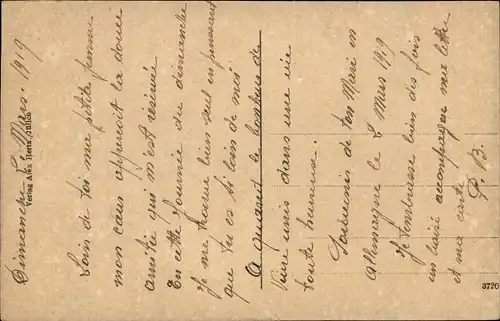 Dimanche 8 Mars. 1919
Loin de toi ma petite femme
mon cœur apperçoit la douce
amitié qui m'est réservée
En cette journée du dimanche
Je me trouve bien seul en pensant
que tu es si loin de moi
A quand le bonheur de
Vivre unis dans une vie
toute heureuse.
Souvenir de ton Mari en
Allemagne le 8 Mars 1919
Je t'embrasse bien des fois
un baisé accompagne ma lettre
et ma carte
P. B.
Verlag Alex Hertz, Jülich
3720